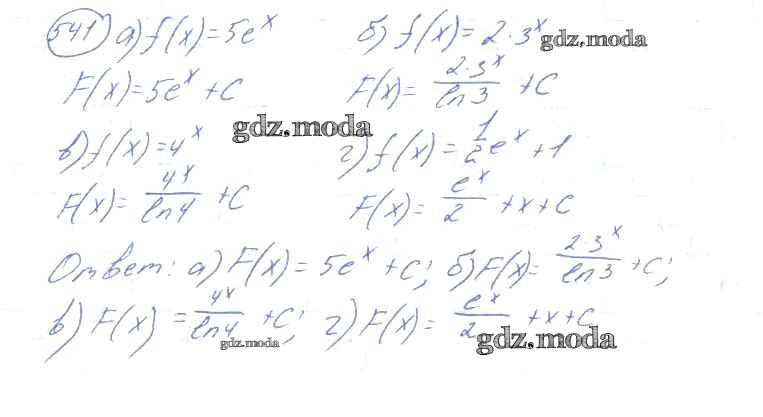 541 а) f(x)=5e^x б) f(x)=2·3^x gdz.moda
F(x)=5e^x+C F(x)=2·3^x/ln3+C
gdz.moda
в) f(x)=4^x г) f(x)=1/2e^x+1
F(x)=4^x/ln4+C F(x)=e^x/2+x+C
Ответ: а) F(x)=5e^x+C; б) F(x)=2·3^x/ln3+C;
в) F(x)=4^x/ln4+C; г) F(x)=e^x/2+x+C
gdz.moda gdz.moda